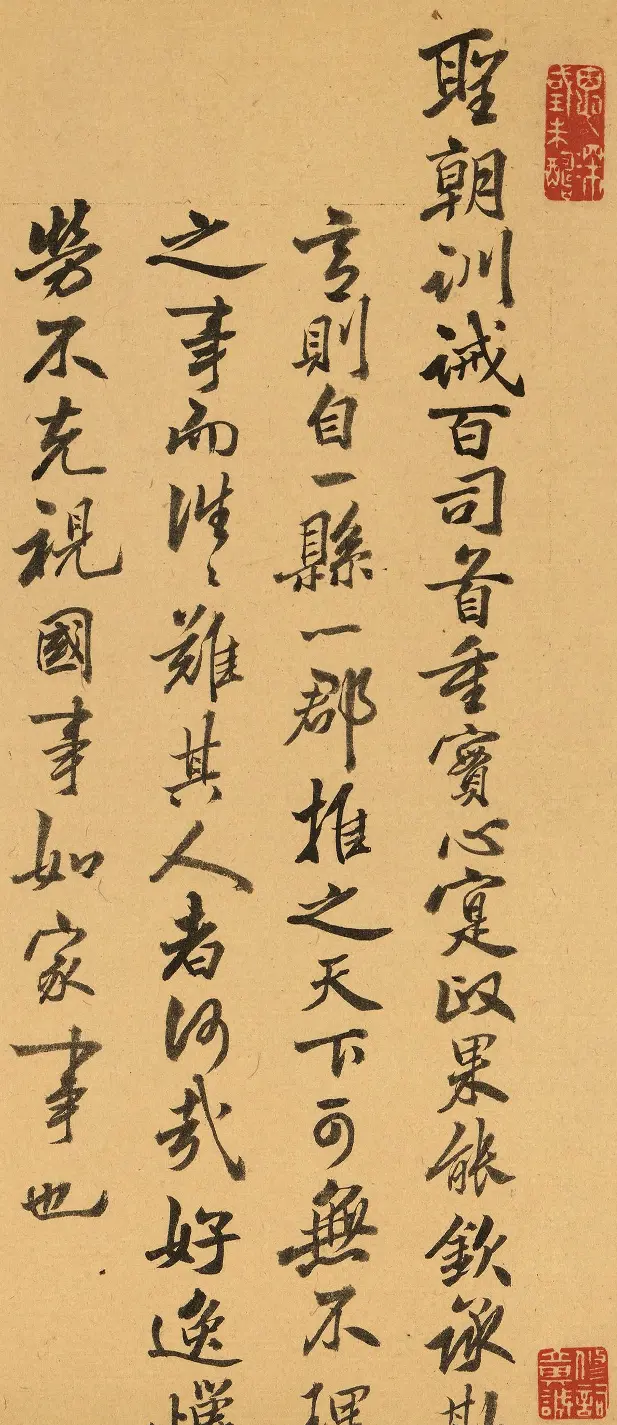 聖朝訓誡百司首重實心寔政果能欽承斯
言則自一縣一郡推之天下可無不理
之事而往〻難其人者何哉好逸憚
勞不克視國事如家事也